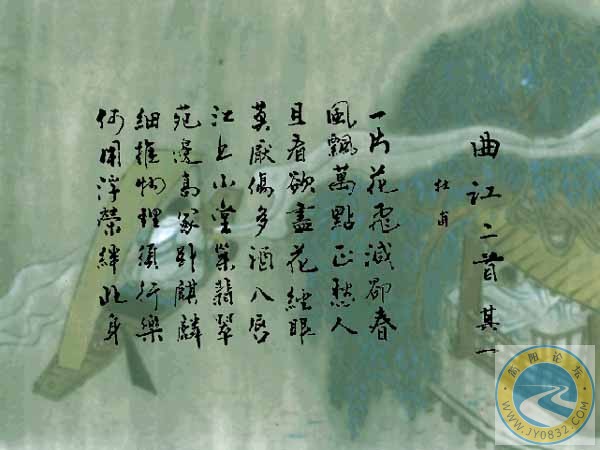 曲江二首 其一
杜甫
一片花飛減卻春
風飄萬點正愁人
且看欲盡花經眼
莫厭傷多酒入唇
江上小堂巢翡翠
苑邊高冢臥麒麟
細推物理須行樂
何用浮榮絆此身
简阳论坛
WWW.JY0832.COM